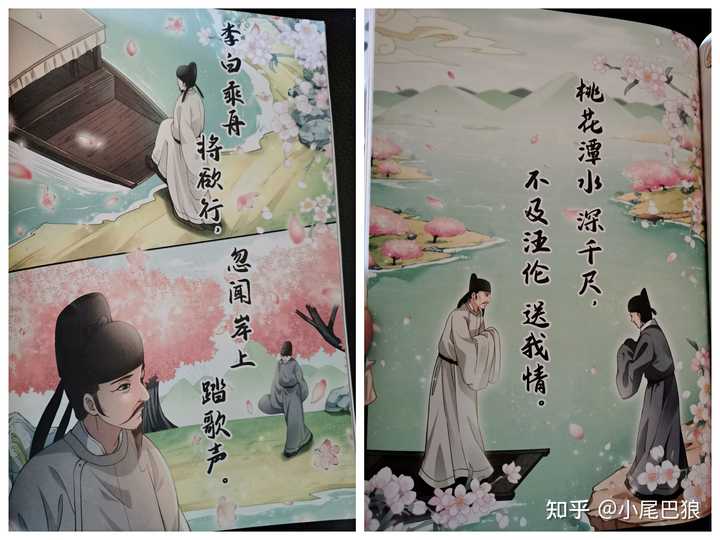 李白乘舟
将欲行，
忽闻岸上
踏歌声。
桃花潭水 深千尺，
不及汪伦 送我情。
知乎 @小尾巴狼